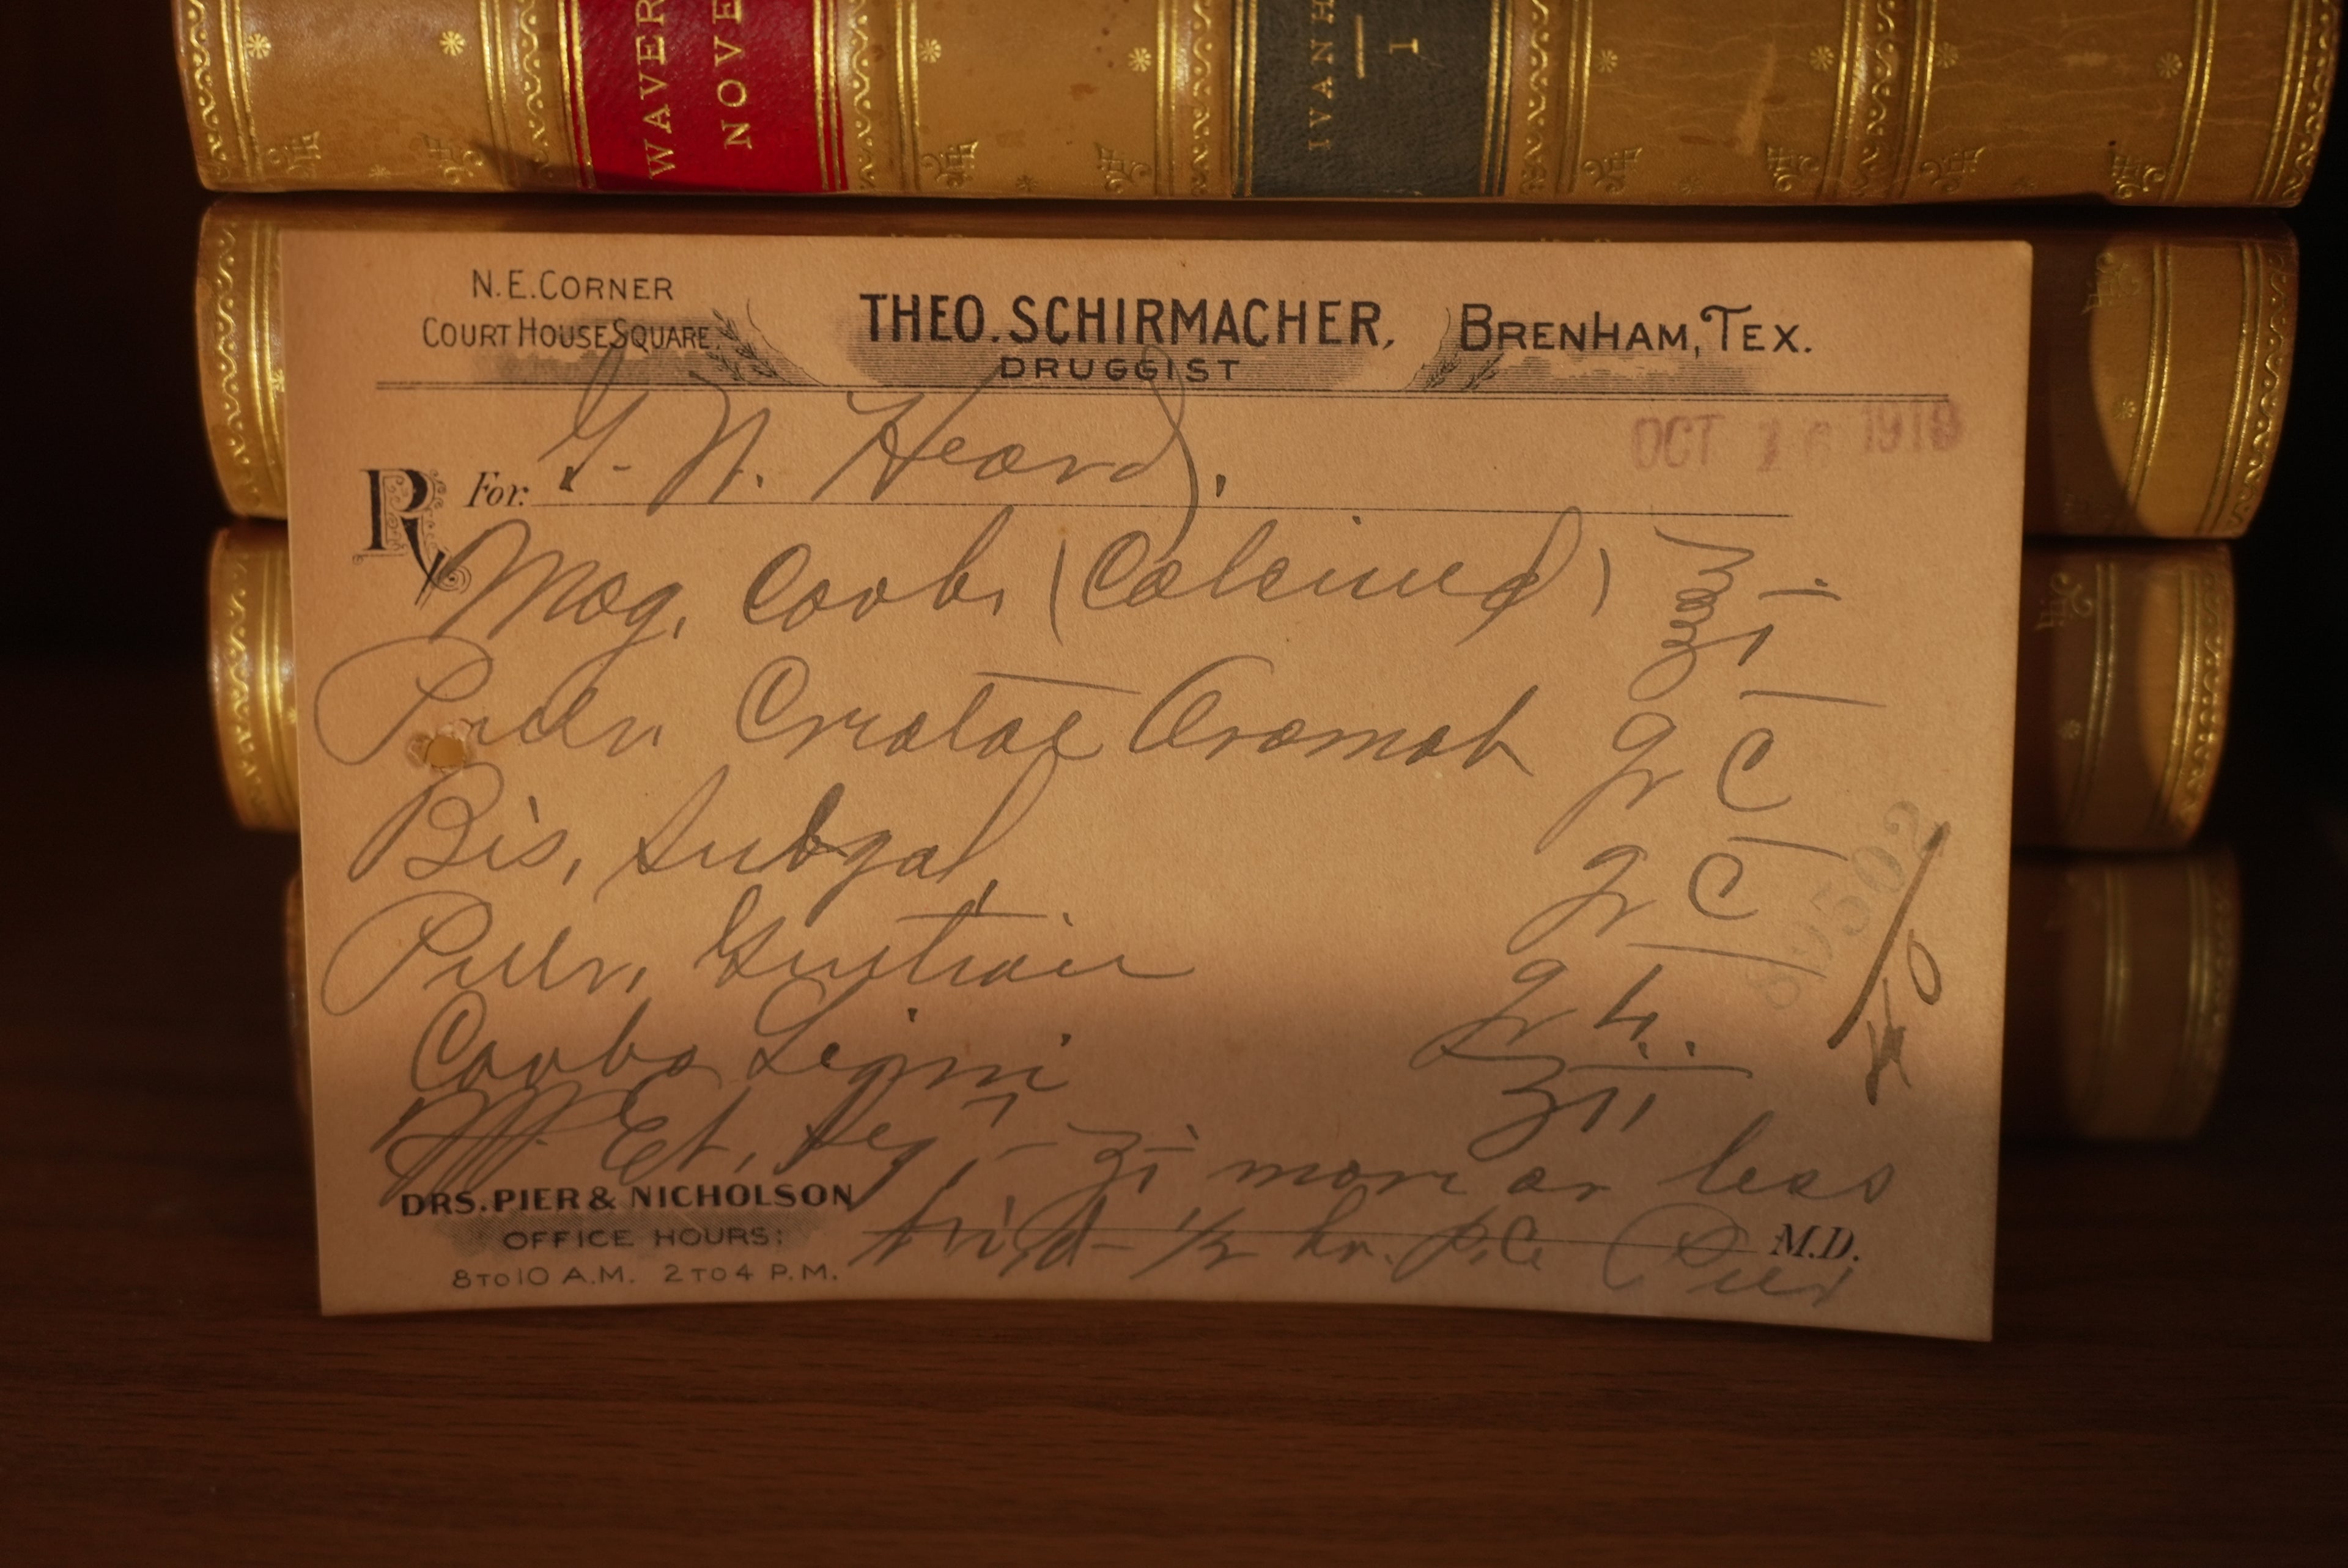 WAVER
NOVE
IVANH
1
N.E. CORNER
COURT HOUSE SQUARE.
THEO. SCHIRMACHER,
DRUGGIST
BRENHAM, TEX.
OCT 16 1910
Rx For. G. N. Heard.
Mag. Carb. (Calcined) ℥i
ʒi
Pulv. Cretae Aromat gr C
Bis. Subgal, gr C
Pulv. Gentian gr L
Carbo Ligni ʒii
M. Et. Sig - ʒi more or less
DRS. PIER & NICHOLSON
OFFICE HOURS:
8 TO 10 A.M. 2 TO 4 P.M.
trid - 1/2 hr. p.c. Pier M.D.